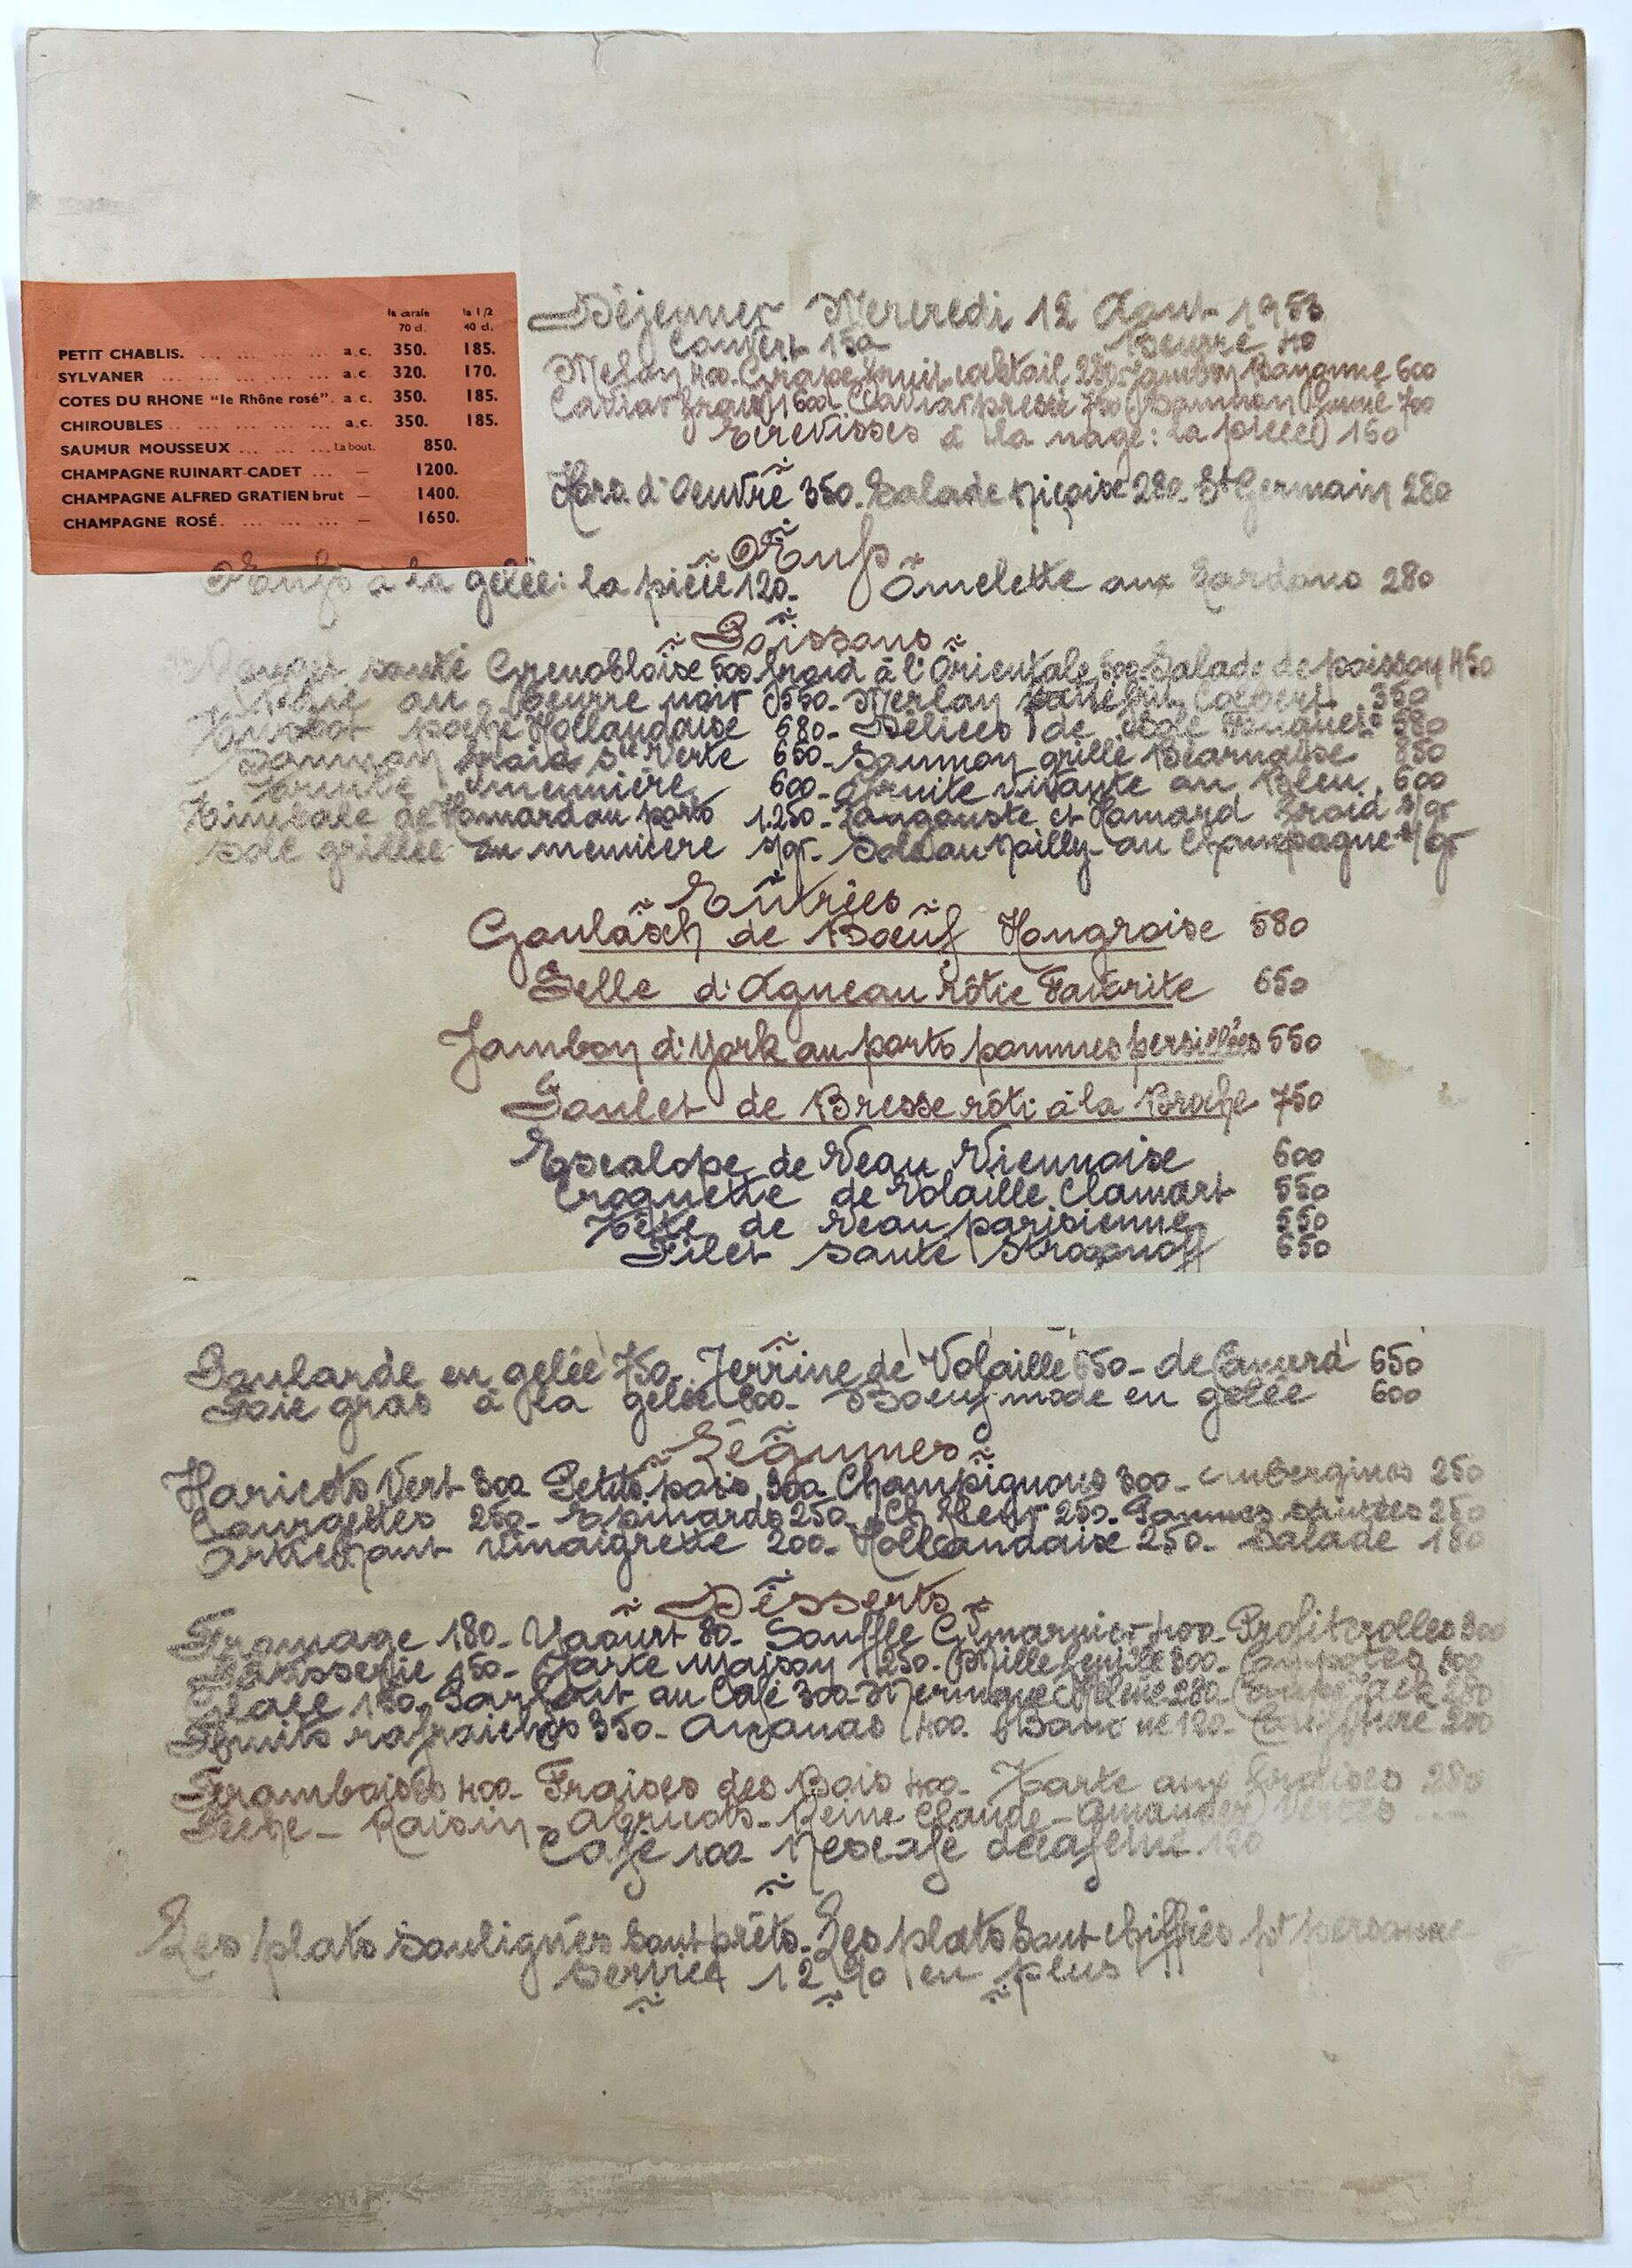 la carafe la 1/2
70 cl. 40 cl.
PETIT CHABLIS. ... ... ... ... a.c. 350. 185.
SYLVANER ... ... ... ... ... a.c. 320. 170.
COTES DU RHONE "le Rhône rosé". a.c. 350. 185.
CHIROUBLES .. ... ... ... ... a.c. 350. 185.
SAUMUR MOUSSEUX ... ... ... La bout. 850.
CHAMPAGNE RUINART-CADET ... — 1200.
CHAMPAGNE ALFRED GRATIEN brut — 1400.
CHAMPAGNE ROSÉ. ... ... ... — 1650.
Déjeuner Mercredi 12 Août 1953
Couvert 150 Beurre 40
Melon 400- Grape fruit cocktail 280- Jambon Bayonne 600
Caviar frais 1600- Caviar pressé 750 Saumon fumé 700
Ecrevisses à la nage: la pièce 150
Hors d'Oeuvre 350- Salade Niçoise 280- St Germain 280
Oeufs
Oeufs à la gelée: la pièce 120- Omelette aux Lardons 280
Poissons
Rouget sauté Grenobloise 500- froid à l'Orientale 500- Salade de poisson 450
Raie au Beurre noir 550- Merlan Colbert 350
Turbot poché Hollandaise 680- Délices de Sole 580
Saumon froid sce Verte 650- Saumon grillé Béarnaise 850
Truite meunière 600- Truite vivante au Bleu 600
Timbale de Homard au porto 1.250- Langouste et Homard froid s/gr
Sole grillée ou meunière s/gr- Sole au Noilly- au Champagne s/gr
Entrées
Goulasch de Boeuf Hongroise 580
Selle d'Agneau rôtie Favorite 650
Jambon d'York au porto pommes persillées 550
Poulet de Bresse rôti à la Broche 750
Escalope de Veau Viennoise 600
Croquette de Volaille Clamart 550
Tête de Veau parisienne 550
Filet sauté Strogonoff 650
Poularde en gelée 750- Terrine de Volaille 650- de Canard 650
Foie gras à la gelée 800- Boeuf mode en gelée 600
Légumes
Haricots Vert 300- Petits pois 300- Champignons 300- Aubergines 250
Courgettes 250- Epinards 250- Ch fleur 250- Pommes sautées 250
Artichaut vinaigrette 200- Hollandaise 250- Salade 180
Desserts
Fromage 180- Yaourt 80- Soufflé Gd marnier 400- Profiterolles 300
Pâtisserie 150- Tarte Maison 250- Millefeuille 300- Compotes 400
Glace 180- Parfait au Café 300- Meringue Glacée 280- Coupe Jack 280
Fruits rafraichis 350- Ananas 400- Banane 120- Confiture 200
Framboises 400- Fraises des Bois 400- Tarte aux fraises 280
Pêche- Raisin- Abricots- Reine Claude- Amandes Vertes
Café 100- Nescafé décaféiné 120
Les plats soulignés sont prêts- Les plats sont chiffrés pr personne
Service 12 % en plus